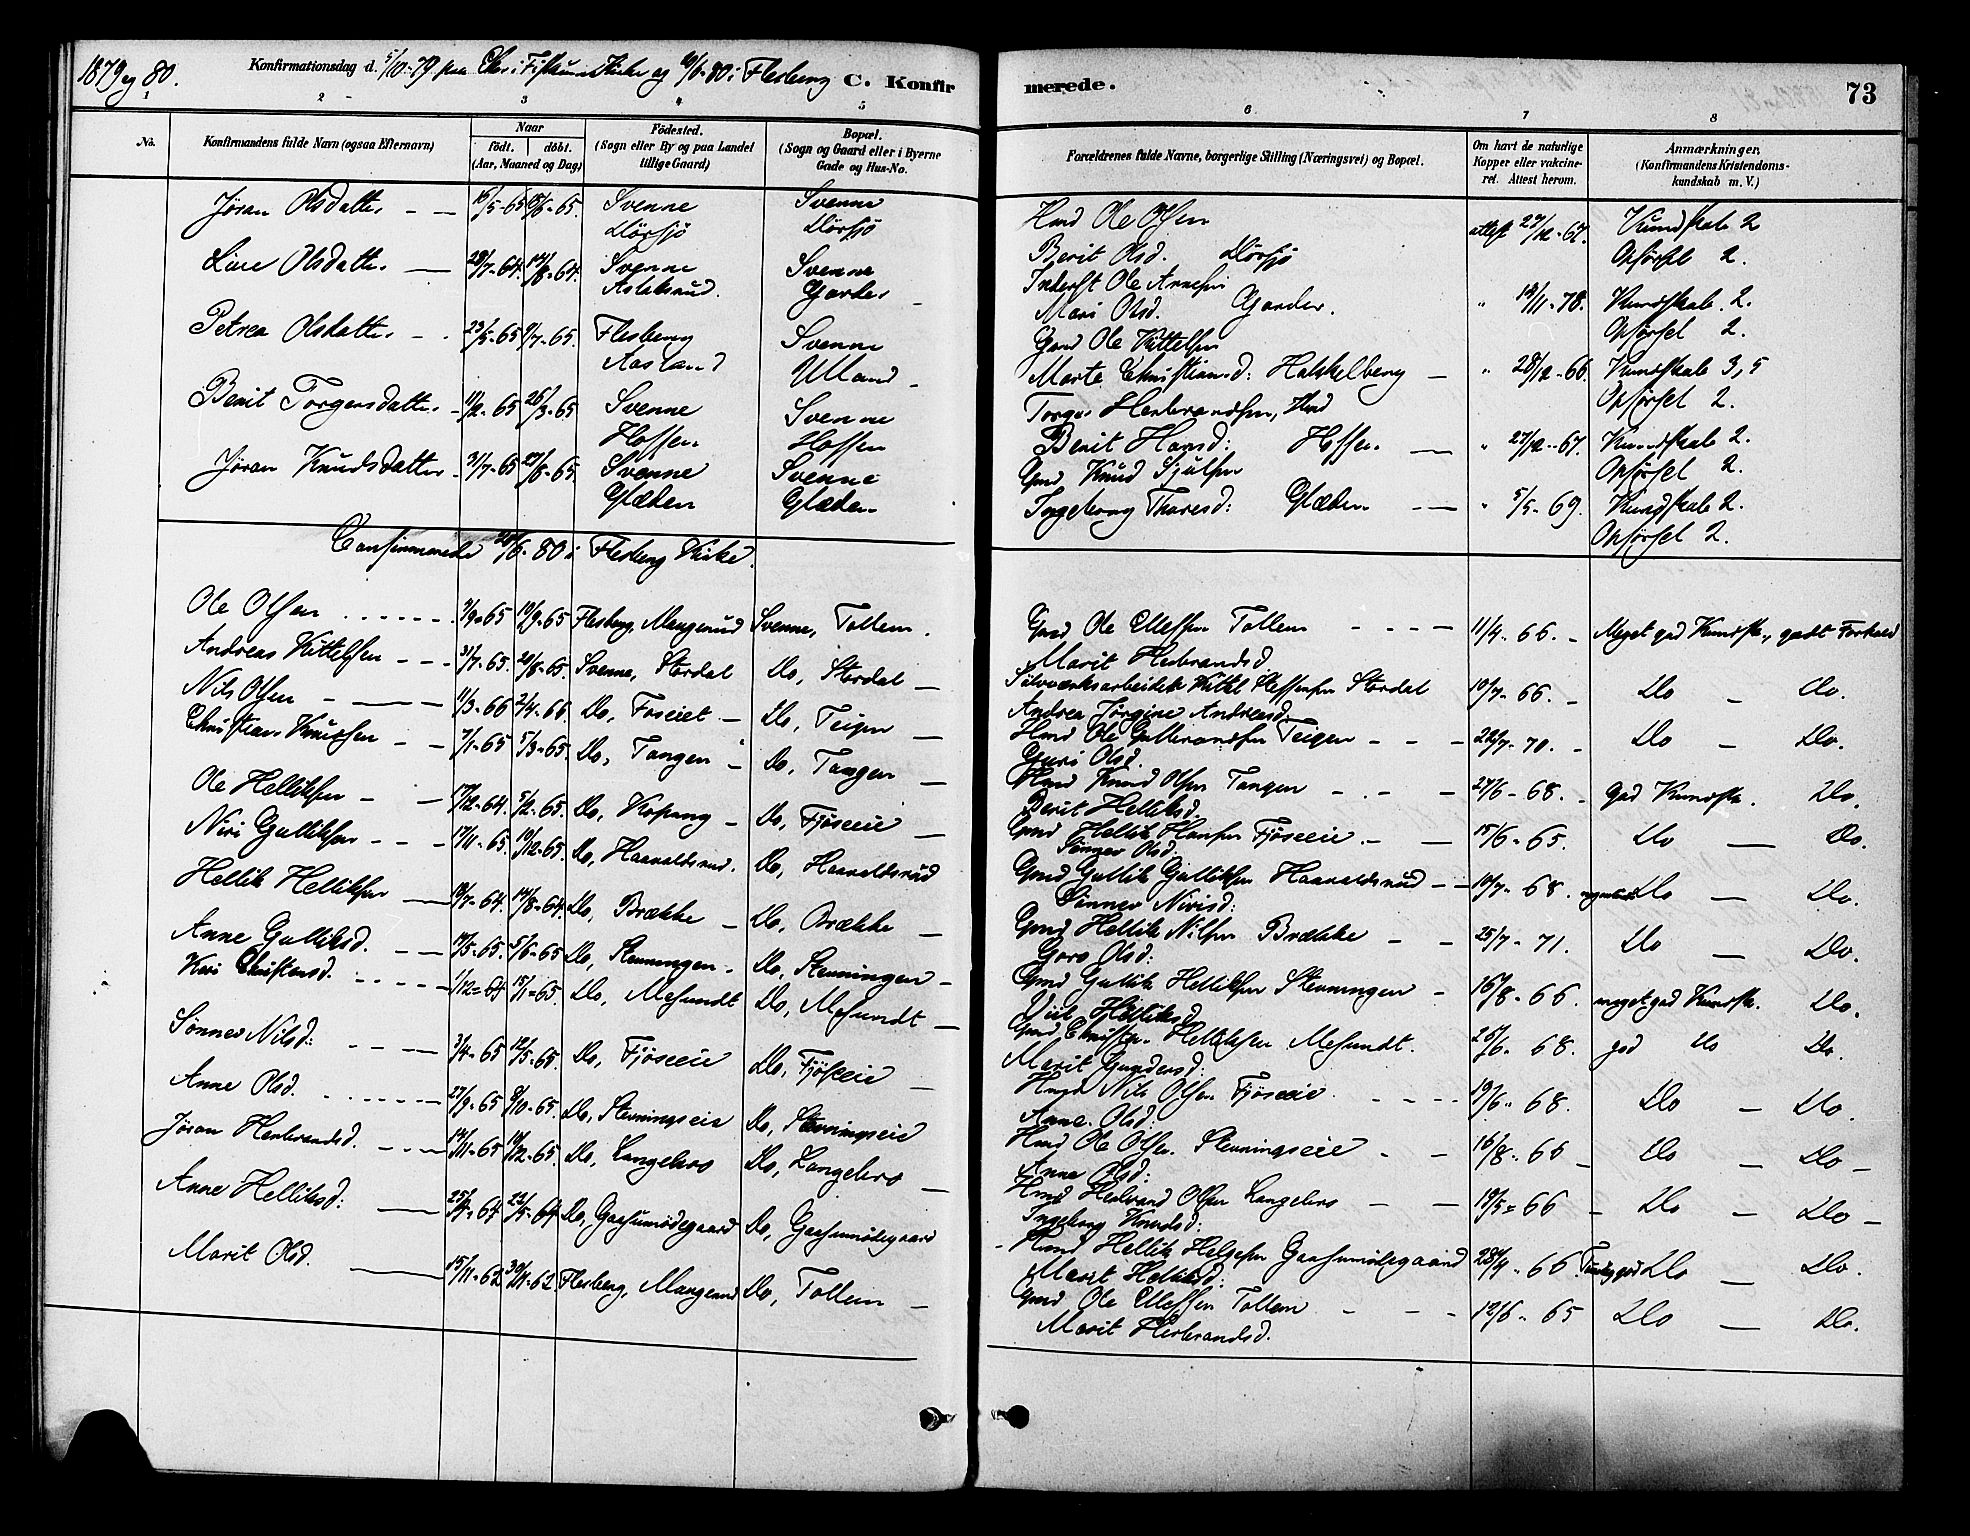 1879 og 80.
Konfirmationsdag d. 5/10-79 paa Eker i Fiskum Kirke og i Flesberg C. Konfir
merede. 73
1 2 3 4 5
6 7 8
No. Konfirmandens fulde Navn (ogsaa Efternavn)
Naar födt. döbt. (Aar, Maaned og Dag)
Födested. (Sogn eller By og paa Landet tillige Gaard)
Bopæl. (Sogn og Gaard eller i Byerne Gade og Hus-No.
Forældrenes fulde Navne, borgerlige Stilling (Næringsvei) og Bopæl.
Om havt de naturlige Kopper eller vakcineret. Attest herom.
Anmærkninger, (Konfirmandens Kristendomskundskab m. V.)
Jöran Olsdatter 16/5-65 -65. Svenne Svenne Hmd Ole Olsen attest 27/12-67. Kundskab 2
Dörsjö Dörsjö Berit Olsd. Dörsjö Opförsel 2.
Line Olsdatter 28/7-64. 14/8-64. Svenne Svenne Inderst Ole
Aslaksrud. Garder Mari Olsd. Garder. " 18/11-78. Kundskab 2.
Opförsel 2.
Petrea Olsdatter 23/5-65 9/7-65. Flesberg Svenne Gmd Ole Kittelsen
Aasland Ulland Marte Christiansd: " 28/12-66. Kundskab 3,5
Opförsel 2.
Berit Torgersdatter 11/2-65 26/3-65. Svenne Svenne Torger Herbrandsen, Hmd
Hoffen Hoffen Berit Hansd: Hoffen " 27/12-67. Kundskab 2.
Opförsel 2.
Jöran Knudsdatter 31/7-65 27/8-65. Svenne Svenne Gmd Knud
Glæden Glæden Ingeborg Thoresd: Glæden " 5/5-69. Kundskab 2.
Opförsel 2.
Confirmerede /6-80 i Flesberg Kirke.
Ole Olsen 3/9-65 19/9-65 Flesberg, Mangerud Svenne, Tollem. Gmd Ole Ellefsen Tollem 11/4-66. Meget god Kundsk., godt Forhold
Marit Herbrandsd.
Andreas Kittelsen 31/7-65. 20/8-65. Svenne, Stordal Do, Stordal Sölvværksarbeider Kittel Steffensen Stordal 10/7-66. Do Do.
Andrea Jörgine Andreasd.
Nils Olsen 11/3-66 2/4-66. Do, Foseiet Do, Teigen Hmd Ole Gulbrandsen Teigen 22/7-70. Do Do.
Guri Olsd.
Christian Knudsen 7/1-65 5/3-65. Do, Tangen Do, Tangen Hmd Knud Olsen Tangen 27/6-68. God Kundsk. Do.
Berit Helliksd.
Ole Helliksen 17/12-64. 5/2-65. Do, Kopang Do, Fjöseie Gmd Hellik Hansen Fjöseeie 15/6-65. Do Do.
Sönnev Olsd.
Niri Gulliksen 17/11-65. 10/12-65. Do, Haavaldsrud. Do, Haavaldsrud Gmd Gullik Gulliksen Haavaldsrud 10/7-68. Do Do.
Sönnev Nirisd:
Hellik Helliksen 18/7-64. 14/8-64. Do, Brække Do, Brække Gmd Hellik Nilsen Brække 25/7-71. Do Do.
Goro Olsd:
Anne Gulliksd. -65. 5/6-65 Do, Stenningen. Do, Stenningen Gmd Gullik Helliksen Stenningen 16/8-66 meget god Kundsk. Do.
Helliksd.
Kari Christensd. 1/12-64 15/1-65. Do, Mesundt Do, Mesundt Gmd Christen Helliksen Mesundt. 26/6 68. god Do Do.
Marit Gundersd:
Sönnev Nilsd: 3/4-65 12/5-65. Do, Fjöseeie Do, Fjöseeie Hmd Nils Olsen Fjöseeie 19/6-68. Do Do.
Anne Olsd:
Anne Olsd. 27/9-65 8/10-65. Do, Stenningseie Do, Stenningseie Hmd Ole Olsen Stenningseie 16/8-66 Do Do
Anne Olsd:
Jöran Herbrandsd. 14/11-65 10/12-65. Do, Langebro Do, Langebro Hmd Herbrand Olsen Langebro 19/5-66 Do Do
Ingeborg Knudsd:
Anne Helliksd: 25/4-64 22/5-64 Do, Gaasumödegaard Do, Gaasumödegaard Hmd Hellik Helgesen Gaasumödegaard 28/4-66 Do Do.
Marit Helliksd:
Marit Olsd. 15/11-62 30/11-62. Flesberg, Mangerud Do, Tollem Gmd Ole Ellefsen Tollem 12/6-65 Do Do.
Marit Herbrandsd.